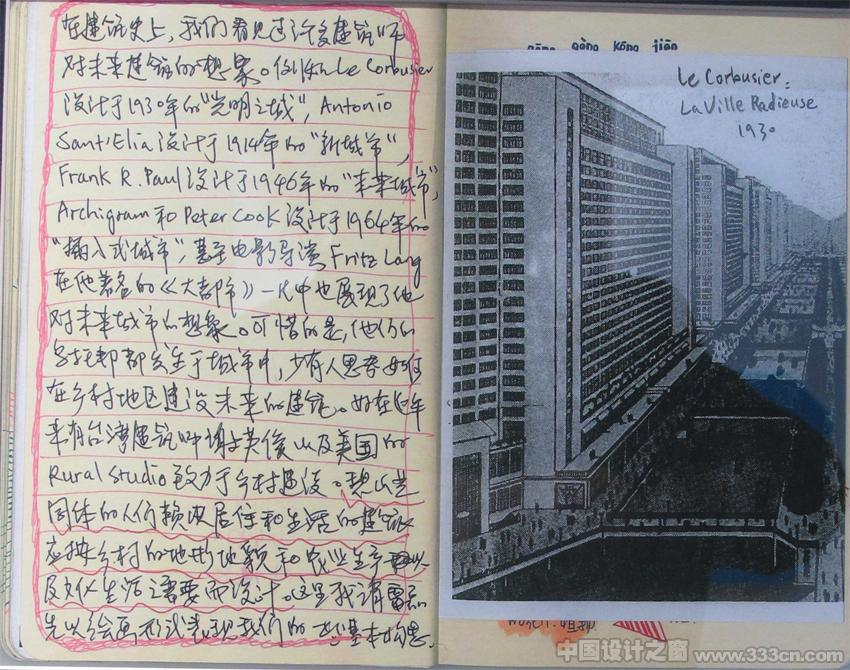 在建筑史上，我们看见过许多建筑师
对未来建筑的想象。例如Le Corbusier
设计于1930年的“光明之城”，Antonio
Sant'Elia设计于1914年的“新城市”，
Frank R. Paul设计于1946年的“未来城市”，
Archigram和Peter Cook设计于1964年的
“插入式城市”，甚至电影导演Fritz Lang
在他著名的《大都市》一片中也展现了他
对未来城市的想象。可惜的是，他们的
乌托邦都发生于城市中，少有人思考如何
在乡村地区建设未来的建筑。好在近年
来有台湾建筑师谢英俊以及美国的
Rural Studio致力于乡村建设。碧山共
同体的人们赖以居住和生活的建筑
应按乡村的地形地貌和农业生产以
及文化生活之需要而设计。这里我请
先以绘画形式表现我们的基本构思
gōng gòng kōng jiān
Le Corbusier:
La Ville Radieuse
1930
中国设计之窗 www.333cn.com